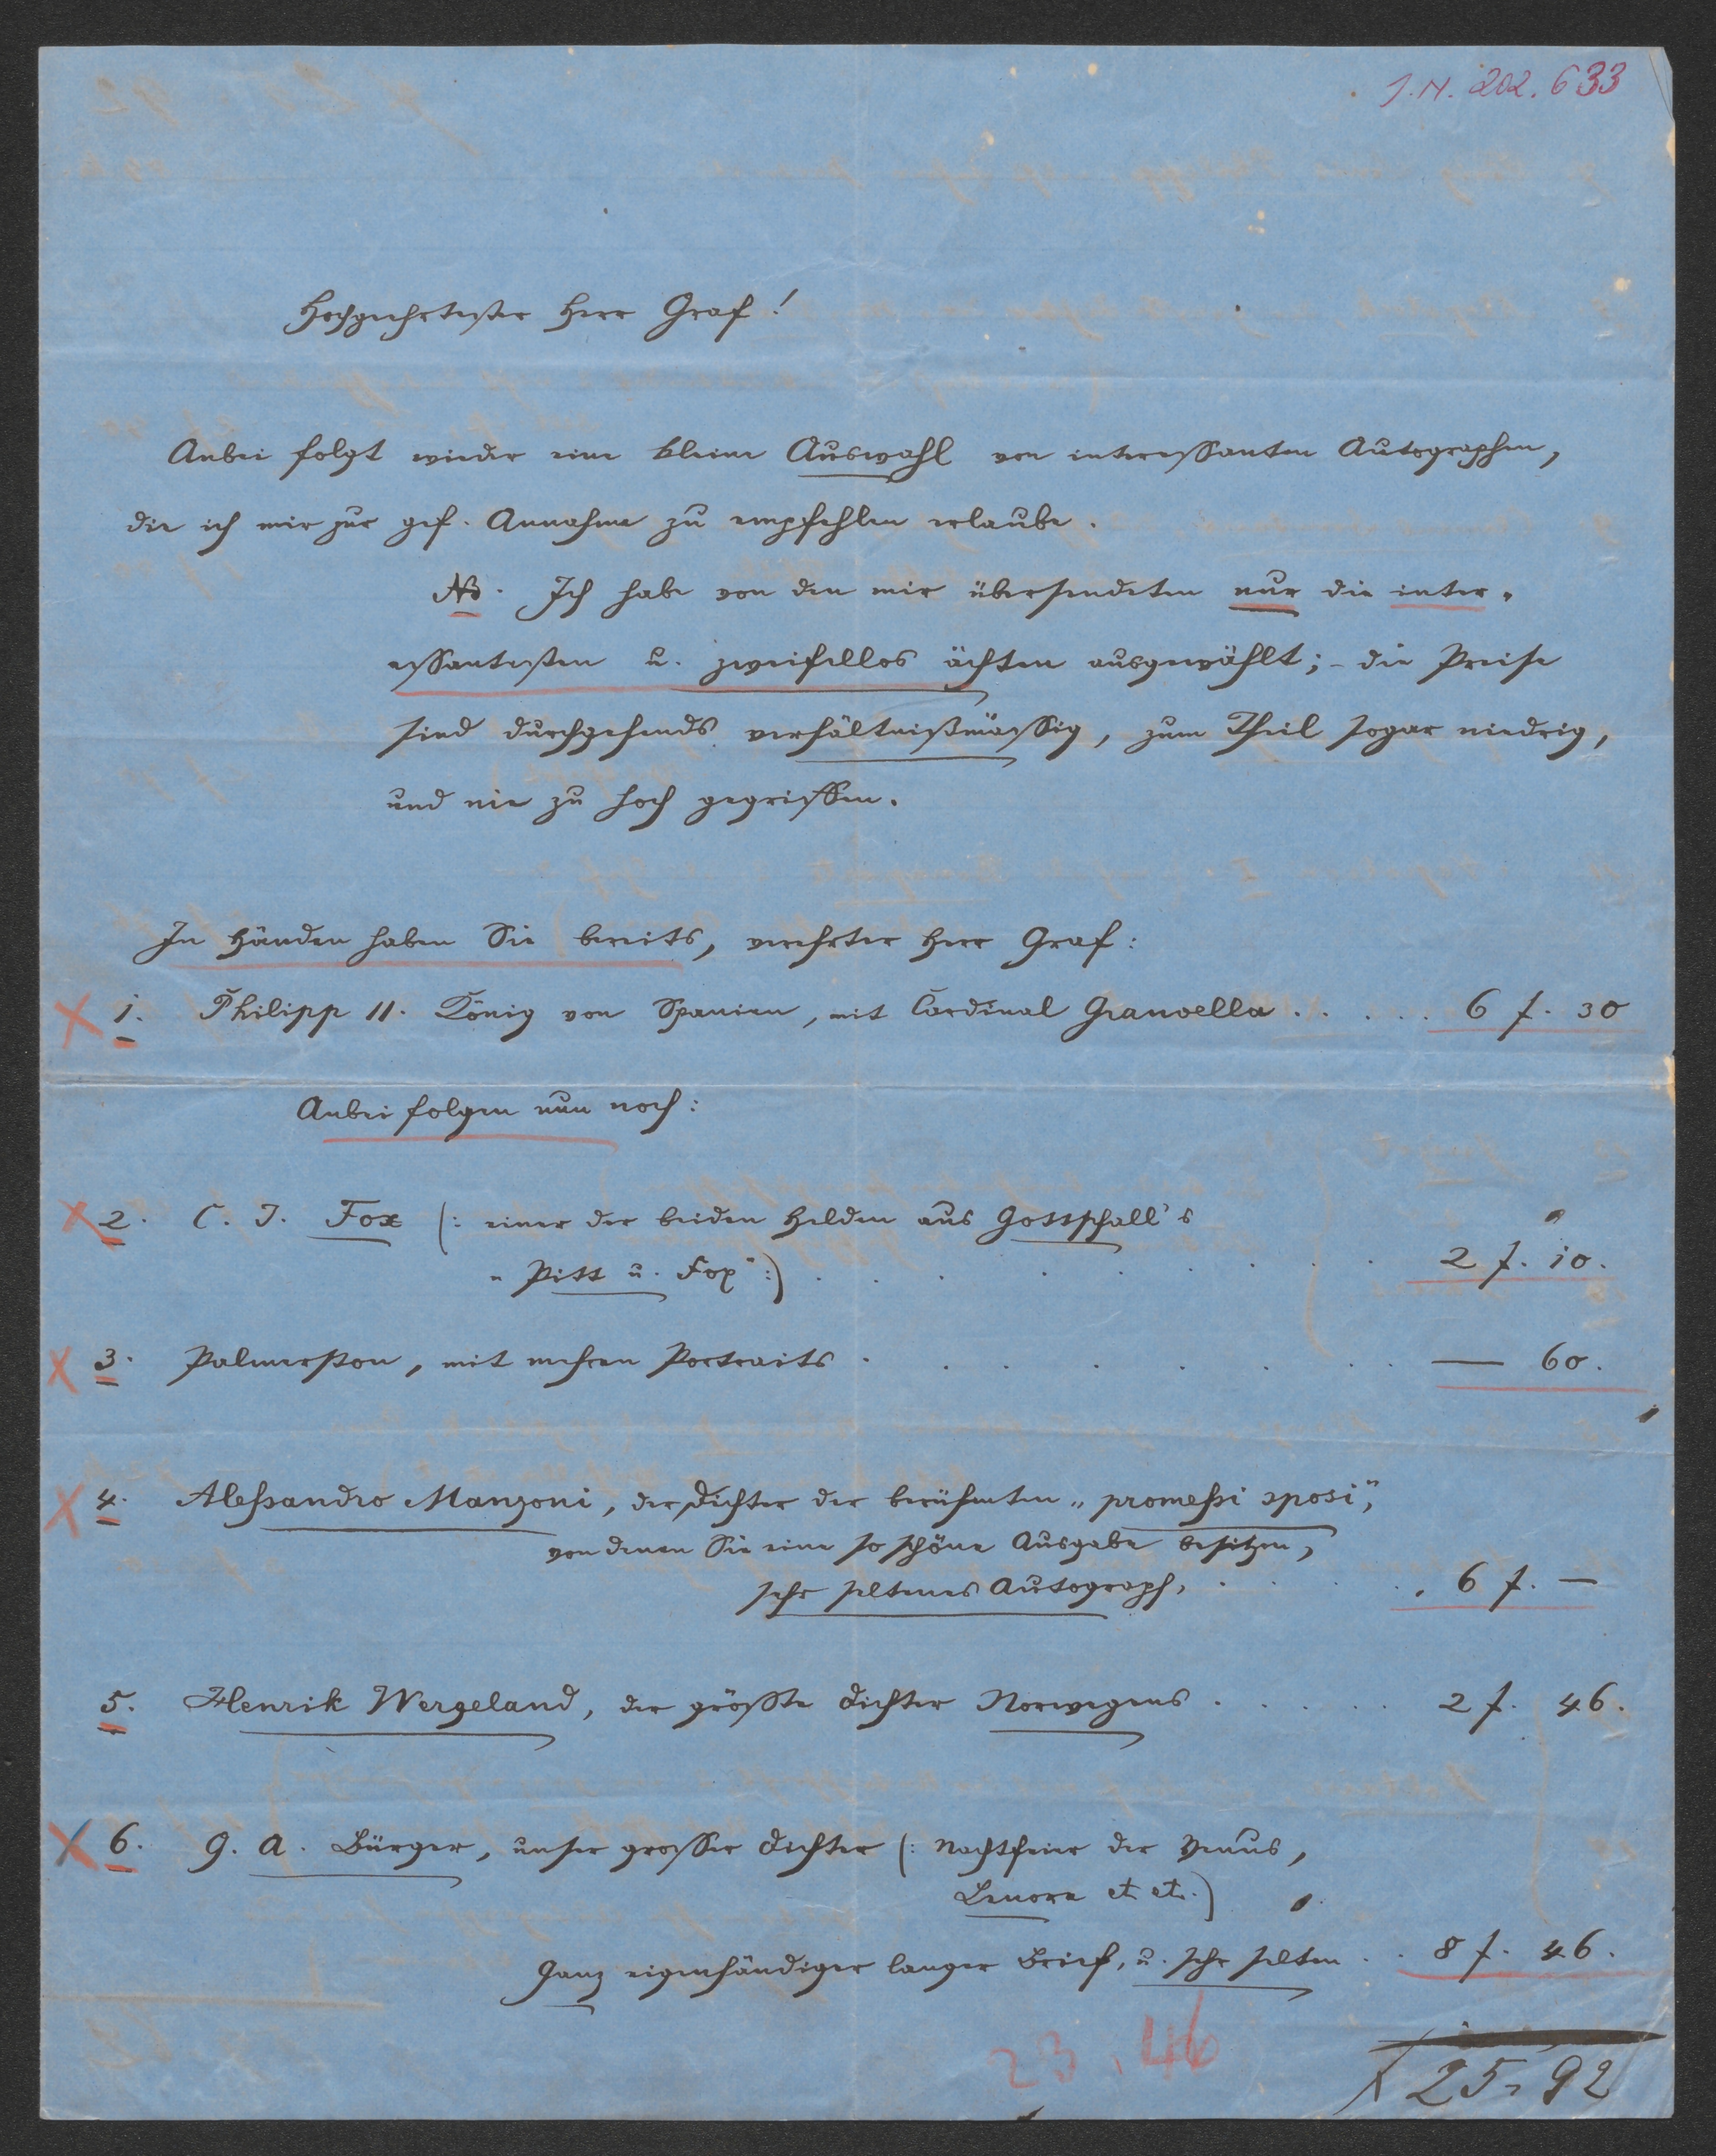 J.N. 202.633
Hochgeehrtester Herr Graf!
Anbei folgt wieder eine kleine Auswahl von interessanten Autographen,
die ich mir zur gef. Annahme zu empfehlen erlaube.
NB. Ich habe von den mir übersendeten nur die inter-
essantesten u. zweifellos ächten ausgewählt; - die Preise
sind durchgehends verhältnißmässig, zum Theil sogar niedrig,
und nie zu hoch gegriffen.
In Händen haben Sie bereits, verehrter Herr Graf:
1. Philipp II. König von Spanien, mit Cardinal Granvella . . . . . 6 f. 30
Anbei folgen nun noch:
2. C. J. Fox (: einer der beiden Helden aus Gottschall's
„Pitt u. Fox“ :) . . . . . . . 2 f. 10.
3. Palmerston, mit mehren Portraits . . . . . . . — 60.
4. Alessandro Manzoni, der Dichter der berühmten „promessi sposi“,
von denen Sie eine so schöne Ausgabe besitzen,
sehr seltenes Autograph, . . . . . 6 f. —
5. Henrik Wergeland, der größte Dichter Norwegens . . . . . 2 f. 46.
6. G. A. Bürger, unser grosser Dichter (: Nachtfeier der Venus,
Lenore etc etc.)
Ganz eigenhändiger langer Brief, u. sehr selten . . 8 f. 46.
23.46
f 25,92